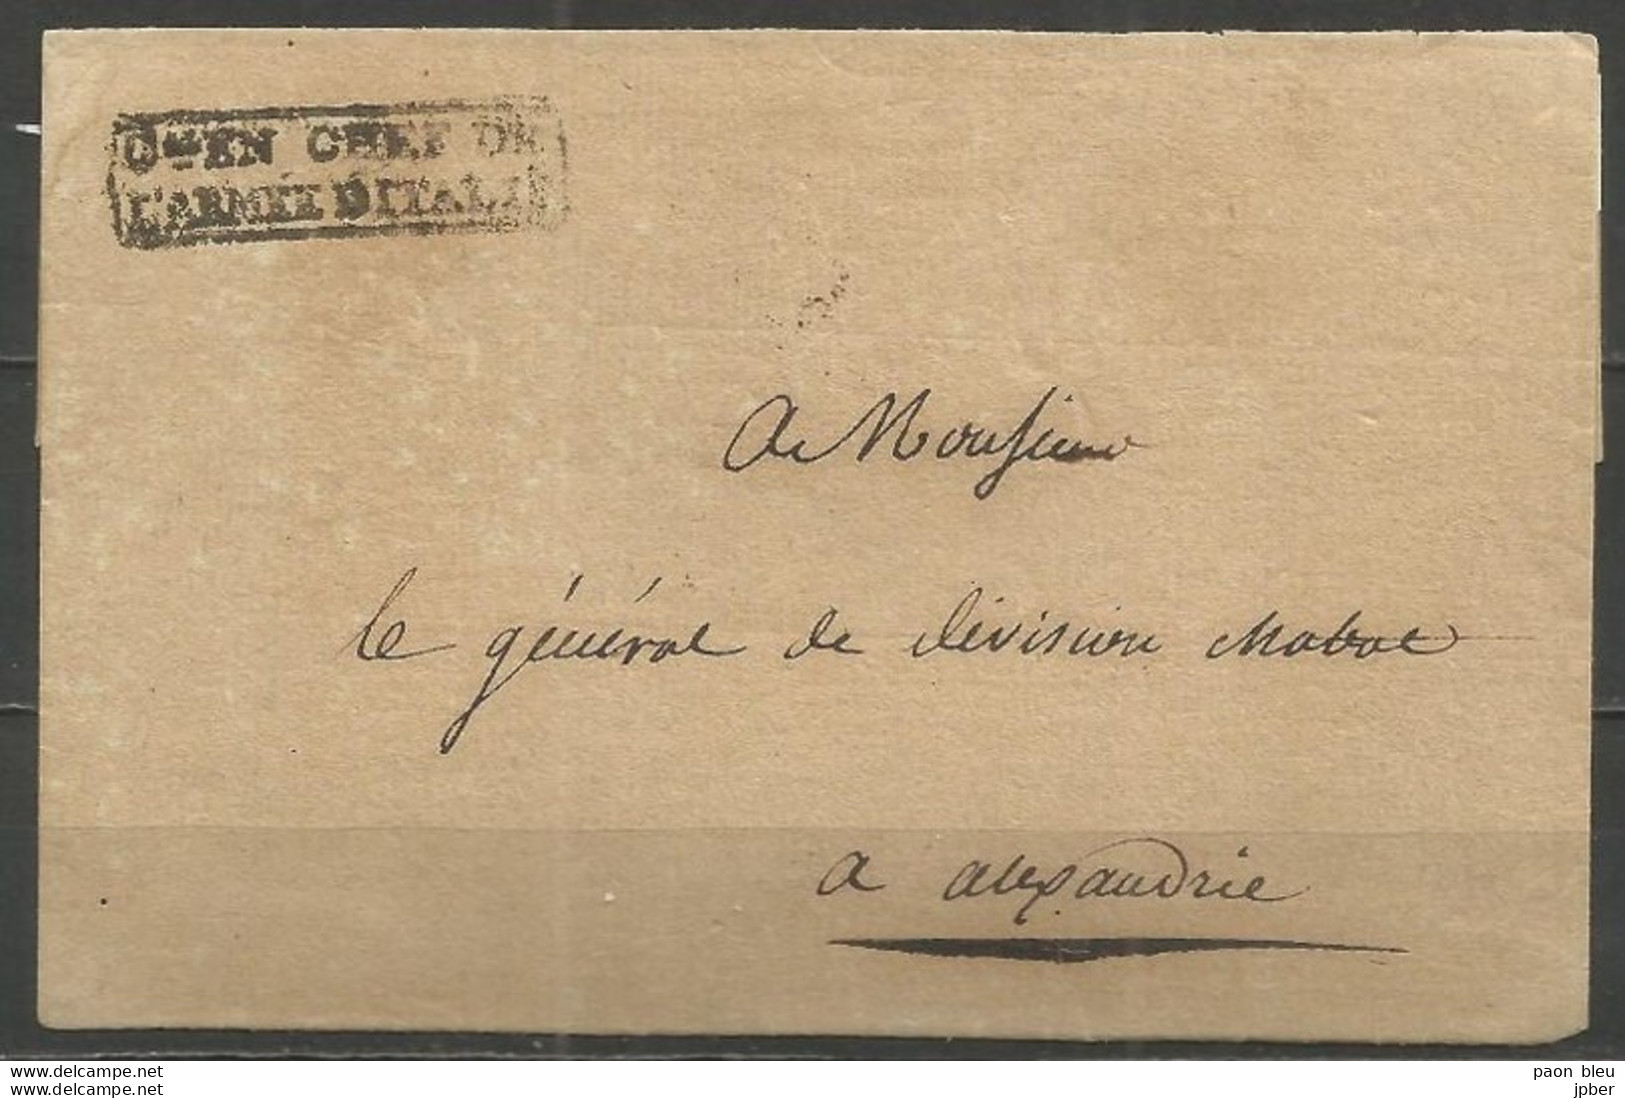 Gal EN CHEF DE
L'ARMÉE D'ITALIE
A Monsieur
le général de division
a alexandrie
www.delcampe.net
www.delcampe.net
paon bleu
jpber